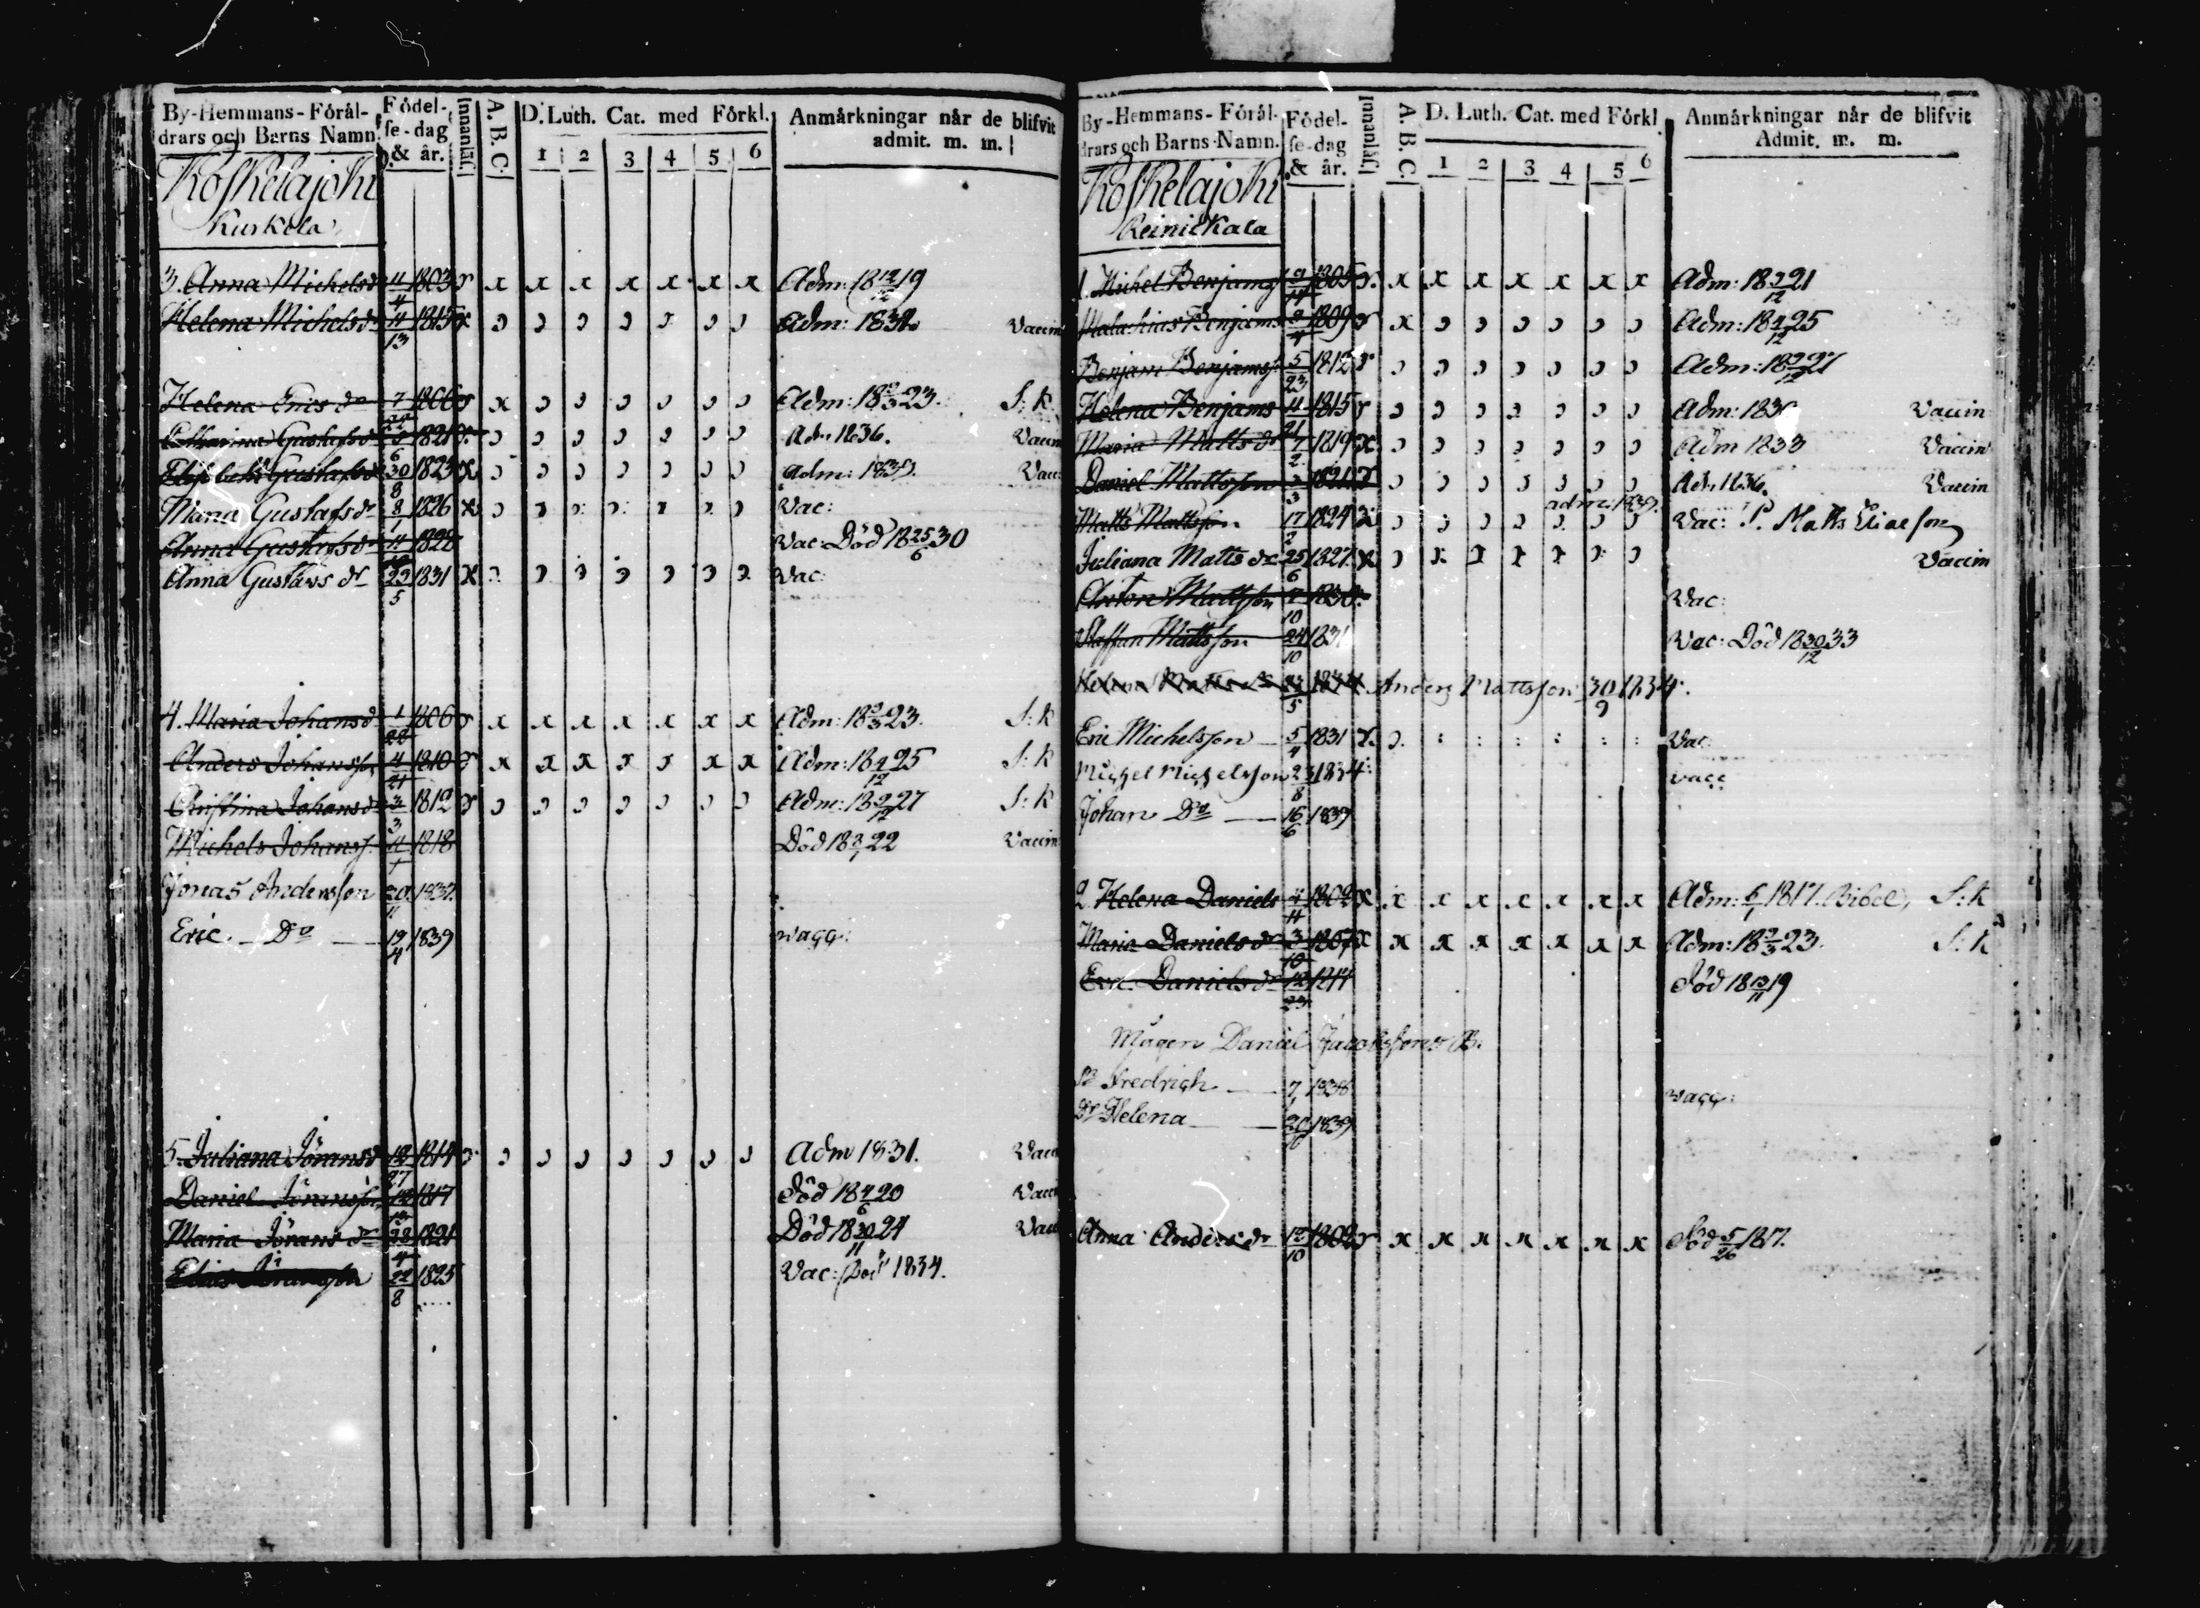 By-Hemmans-Förål- Födel- Innanläs. A. B. C. D. Luth. Cat. med Förkl. Anmärkningar når de blifvit
drars och Barns Namn. se-dag & år. 1 2 3 4 5 6 admit. m. m.
Koskelajoki
Kurkola
3. Anna Michelsdr 11/4 1803 x x x x x x x Adm: 18 12/12 19
Helena Michelsdr 11/13 1815 Adm: 1832 Vaccin
Helena Ericsdr 7/22 1806 x Adm: 18 9/3 23. S: K
Catharina Gustafsdr 1821 Adm 1836. Vaccin
Elisabeth Gustafsdr 30/8 1823 Adm: 1839. Vacc:
Maria Gustafsdr 8/1 1826 Vac:
Anna Gustafsdr 1828 Vac: Död 18 25/6 30
Anna Gustavsdr 29/5 1831 Vac:
4. Maria Johansdr 1/22 1806 x x x x x x x Adm: 18 9/3 23. S: K
Anders Johansson 4/21 1810 x x x x x x Adm: 18 4/12 25 S: K
Christina Johansdr 3/3 1812 Adm: 18 9/12 27 S: K
Michels Johanss. 11/1 1818 Död 18 3/1 22 Vaccin
Jonas Andersson 20/11 1837.
Eric. Do 19/4 1839 vacc:
5. Juliana Jöransdr 12/27 1814 Adm 1831. Vacc
Daniel Jöranss. 1817 Död 18 4/6 20 Vacc
Maria Jöransdr 1821 Död 18 30/11 24 Vacc
Elias Jöransson 22/8 1825 Vac: Död 1834.
By-Hemmans-Förål- Födel- Innanläs. A. B. C. D. Luth. Cat. med Förkl Anmärkningar når de blifvit
drars och Barns Namn. se-dag & år. 1 2 3 4 5 6 Admit. m. m.
Koskelajoki
Reinickala
1. Michel Benjamss 9/14 1805 x x x x x x x Adm: 18 9/12 21
Malachias Benjamss 9/4 1809 x Adm: 18 4/12 25
Benjam Benjamss. 5/23 1812 Adm: 18 9/12 27
Helena Benjams 11/21 1815 Adm: 1830 Vaccin
Maria Mattsdr 7/2 1819 Adm 1833 Vaccin
Daniel Mattsson 3/3 1821 Adm 1836. Vaccin
Matts Mattsson 17/2 1824 adm: 1839. Vac: P. Matts Eliaeson
Juliana Mattsdr 25/6 1827 Vaccin
Anton Mattsson 7/10 1830 Vac:
Staffan Mattsson 24/10 1831 Vac: Död 18 30/12 33
Helena Mattsdr 1834 Anders Mattsson 30/9 1834.
Eric Michelsson 5/4 1831 Vac:
Michel Michelsson 23/8 1834 vacc
Johan Do 16/6 1839
2. Helena Daniels 4/11 1802 x x x x x x x Adm: 6/1 1817. Bibel, S: K
Maria Danielsdr 3/10 1807 x x x x x x x Adm: 18 9/3 23. S: K
Eric Danielsdr 12/23 1814 Död 18 13/11 19
Mågen Daniel Jacobssons B.
S. Fredrich 7/1 1838 vacc:
Dr Helena 20 1839
Anna Andersdr 12/10 1802 x x x x x x x Död 5/26 1817.